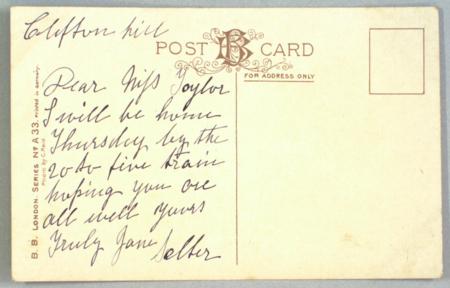 Clifton hill
POST CARD
BB
FOR ADDRESS ONLY
Dear Miss Taylor
I will be home
Thursday by the
20 to five train
hoping you are
all well yours
Truly Jane
Selber
B. B. LONDON. SERIES No A 33. Printed in Germany.